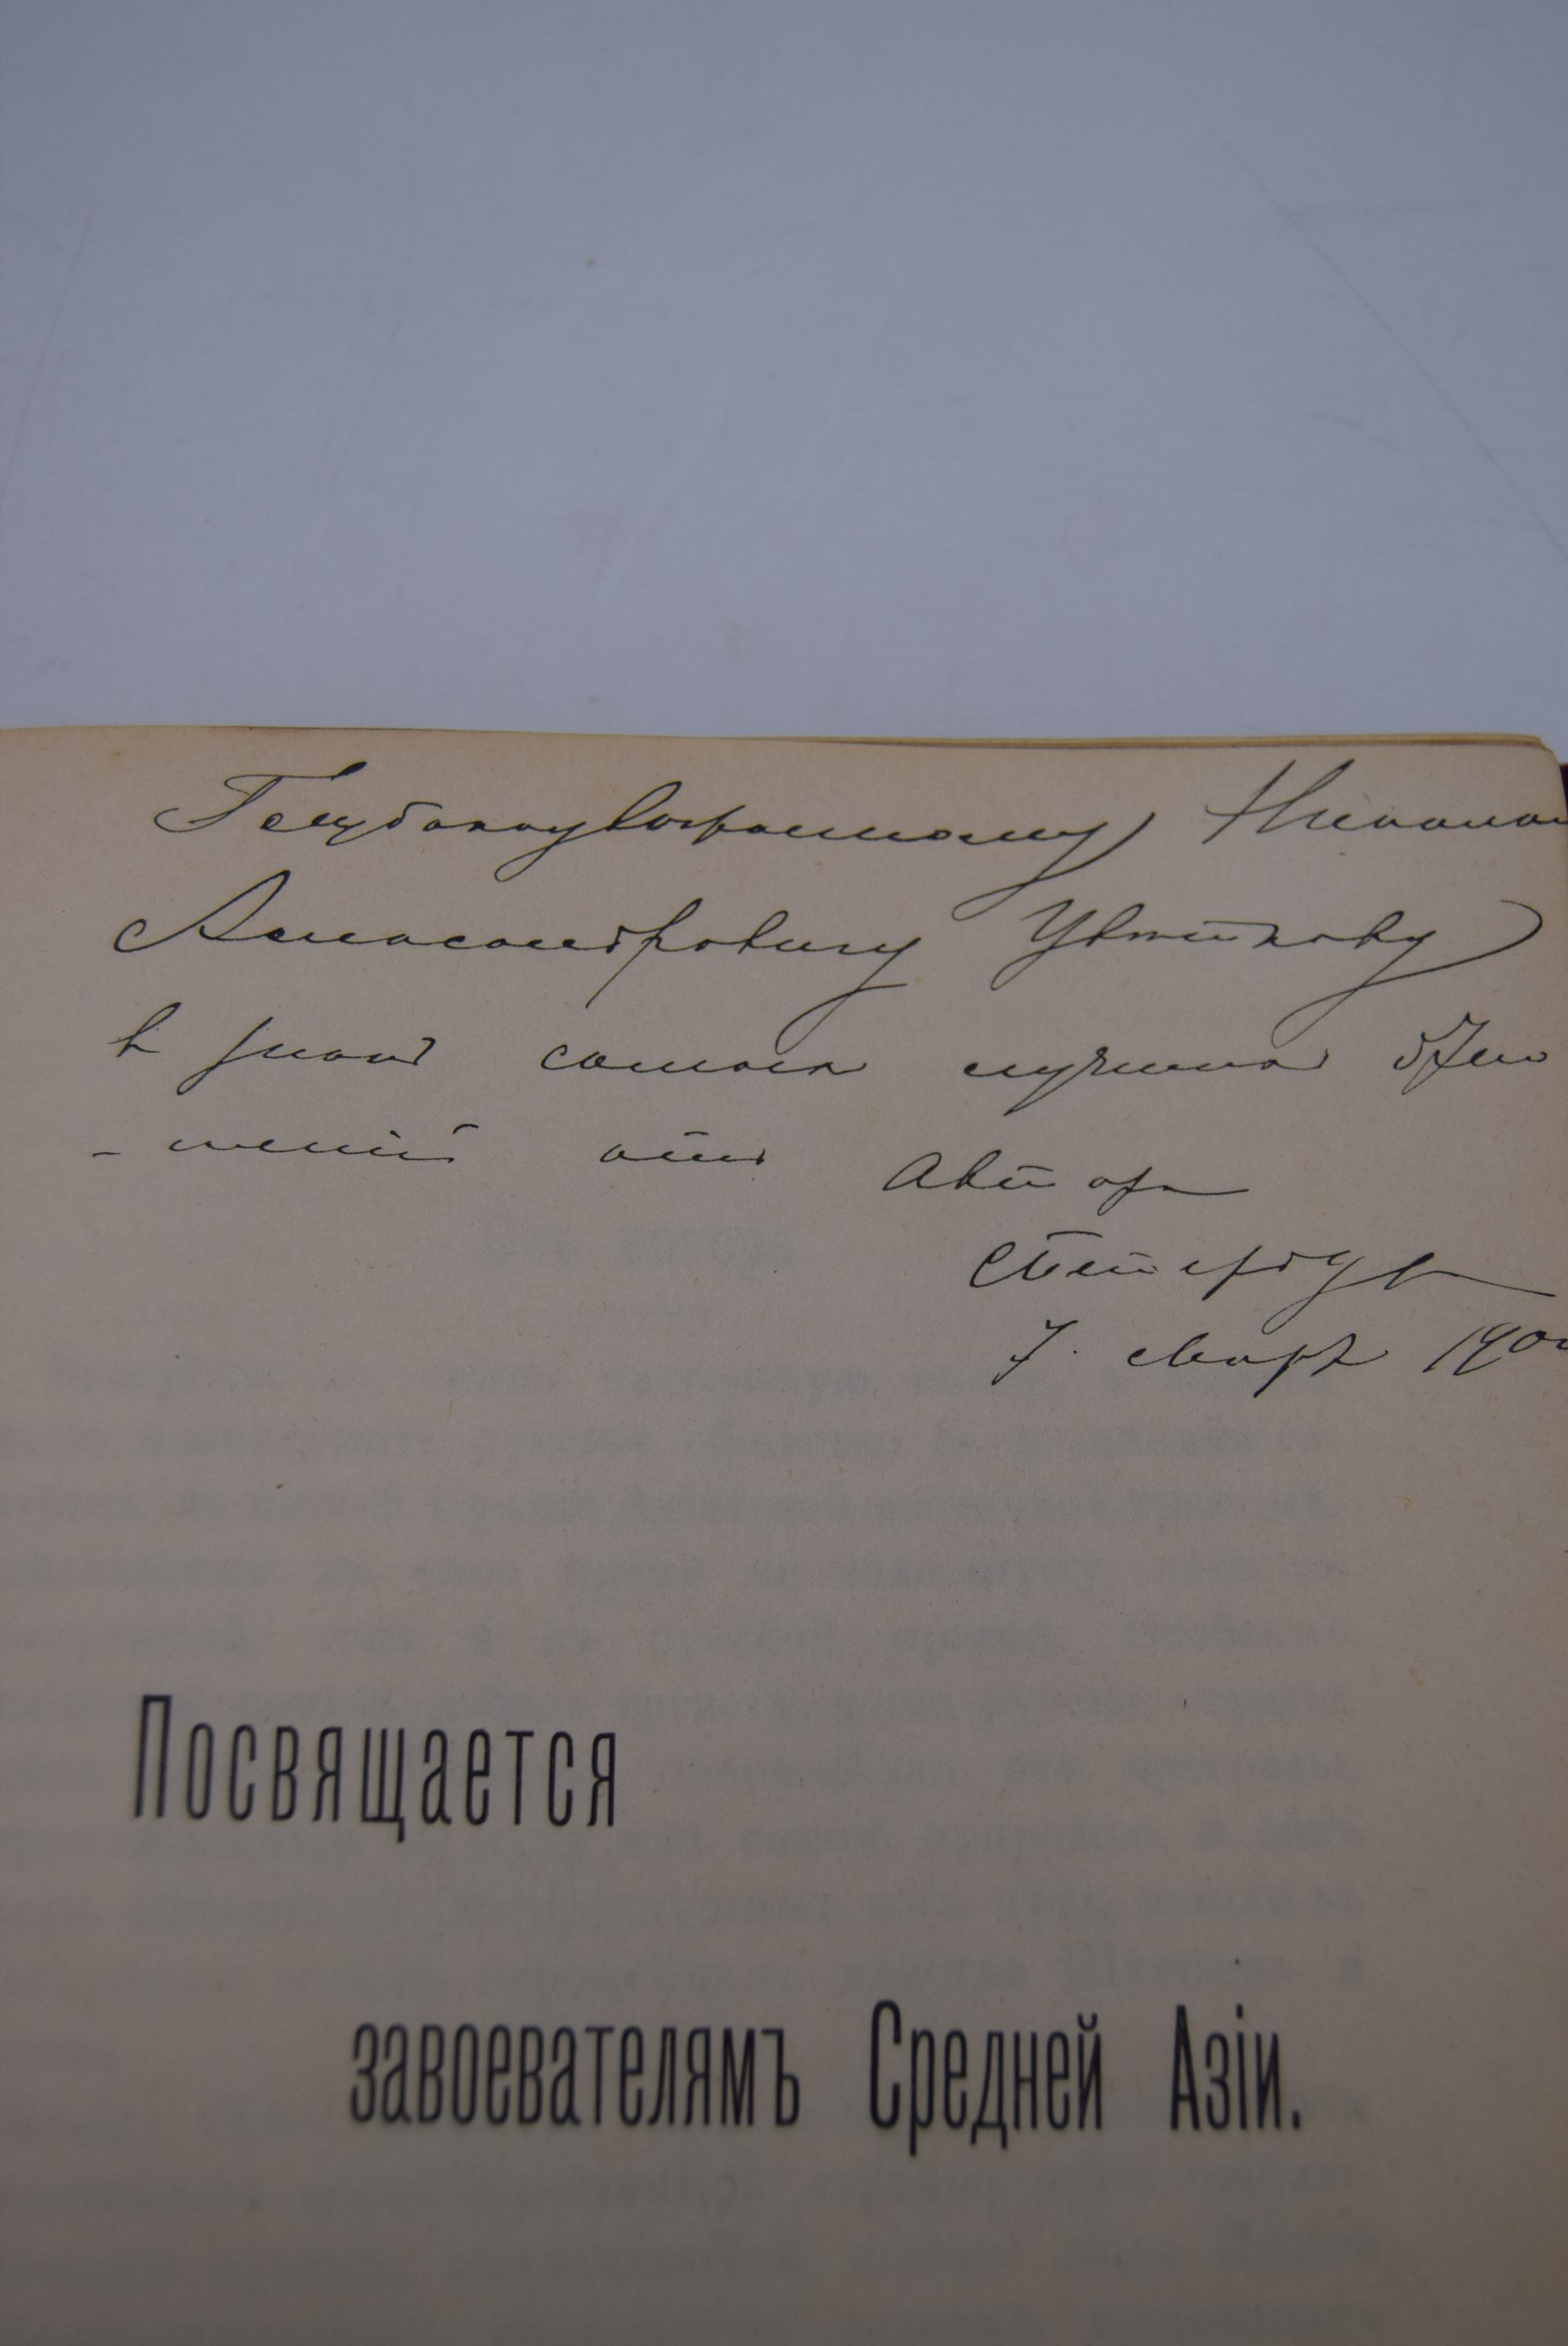 Глубокоуважаемому Никола
Александровичу Цветкову
в знак самых лучших
от автора
СПетербург
7. Март 190
Посвящается
завоевателямъ Средней Азіи.